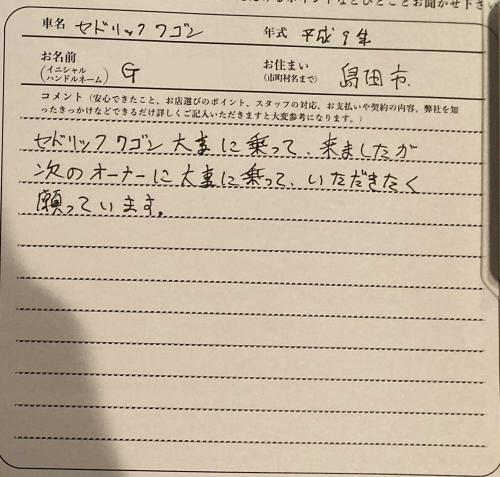 るポイントなどひとことお聞かせ下さい
車名 セドリックワゴン 年式 平成9年
お名前 (イニシャル ハンドルネーム) G お住まい (市町村名まで) 島田市.
コメント(安心できたこと、お店選びのポイント、スタッフの対応、お支払いや契約の内容、弊社を知
ったきっかけなどできるだけ詳しくご記入いただきますと大変参考になります。)
セドリックワゴン大事に乗って、来ましたが
次のオーナーに大事に乗って、いただきたく
願っています。